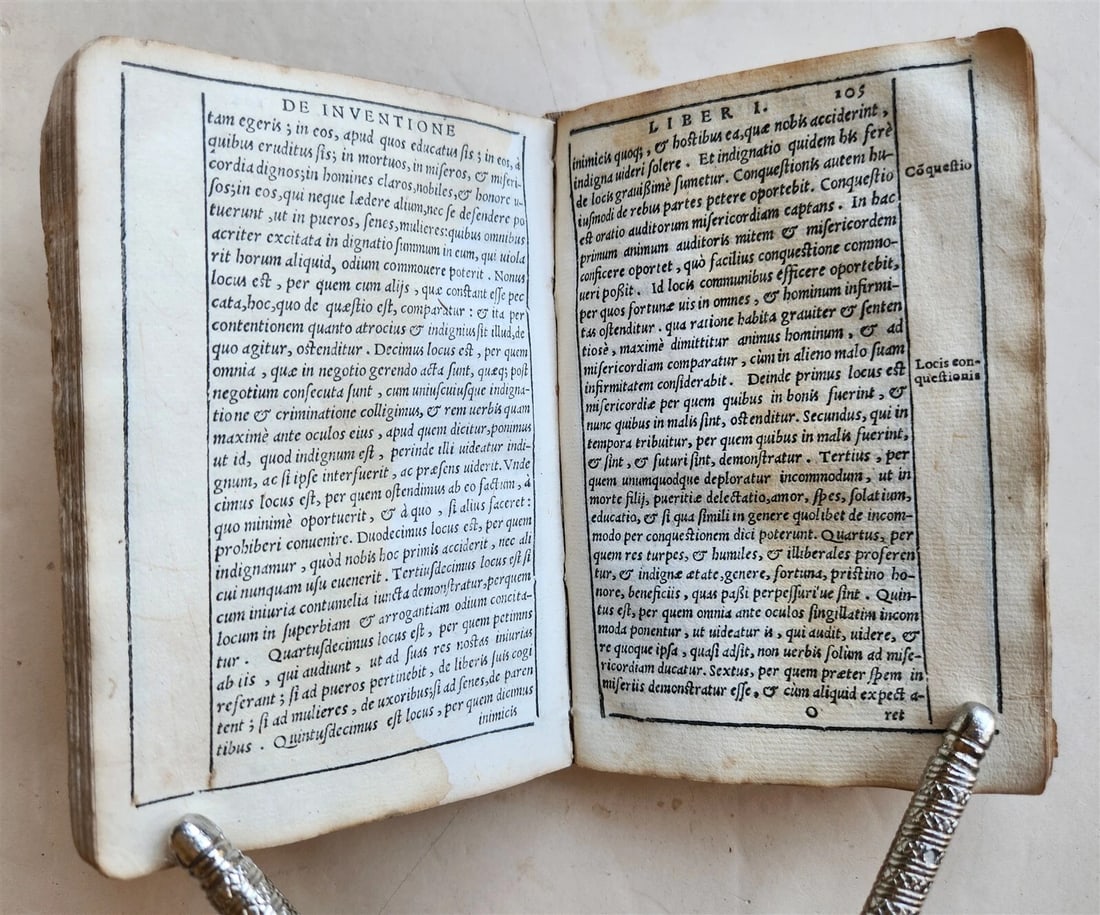 DE INVENTIONE
tam egeris ; in eos, apud quos educatus sis ; in eos, à
quibus eruditus sis; in mortuos, in miseros, & miseri-
cordia dignos;in homines claros,nobiles,& honore u-
sos;in eos,qui neque lædere alium,nec se defendere po
tuerunt ,ut in pueros, senes,mulieres:quibus omnibus
acriter excitata in dignatio summum in eum, qui uiola
rit horum aliquid, odium commouere poterit . Nonus
locus est , per quem cum alijs , quæ constant esse pec
cata,hoc,quo de quæstio est, comparatur : & ita per
contentionem quanto atrocius & indignius sit illud,de
quo agitur, ostenditur . Decimus locus est , per quem
omnia , quæ in negotio gerendo acta sunt, quæq; post
negotium consecuta sunt , cum uniuscuiusque indigna-
tione & criminatione colligimus, & rem uerbis quam
maximè ante oculos eius , apud quem dicitur,ponimus
ut id, quod indignum est , perinde illi uideatur indi-
gnum, ac si ipse interfuerit , ac præsens uiderit. Vnde
cimus locus est, per quem ostendimus ab eo factum, à
quo minimè oportuerit, & à quo , si alius faceret :
prohiberi conuenire. Duodecimus locus est, per quem
indignamur , quòd nobis hoc primis acciderit , nec ali
cui nunquam usu euenerit . Tertiusdecimus locus est si
cum iniuria contumelia iuncta demonstratur,perquem
locum in superbiam & arrogantiam odium concita-
tur . Quartusdecimus locus est , per quem petimus
ab iis , qui audiunt , ut ad suas res nostas iniurias
referant ; si ad pueros pertinebit , de liberis suis cogi
tent ; si ad mulieres , de uxoribus;si ad senes,de paren
tibus . Quintusdecimus est locus , per quem dicimus
inimicis
LIBER I. 105
inimicis quoq; , & hostibus ea,quæ nobis acciderint ,
indigna uideri solere . Et indignatio quidem his ferè
de locis grauißimè sumetur. Conquestionis autem hu-
iusmodi de rebus partes petere oportebit. Conquestio
est oratio auditorum misericordiam captans . In hac
primum animum auditoris mitem & misericordem
conficere oportet , quò facilius conquestione commo-
ueri poßit . Id locis communibus efficere oportebit,
per quos fortunæ uis in omnes , & hominum infirmi-
tas ostenditur . qua ratione habita grauiter & senten
tiosè , maximè dimittitur animus hominum , & ad
misericordiam comparatur , cùm in alieno malo suam
infirmitatem considerabit . Deinde primus locus est
misericordiæ per quem quibus in bonis fuerint , &
nunc quibus in malis sint, ostenditur. Secundus, qui in
tempora tribuitur, per quem quibus in malis fuerint,
& sint , & futuri sint, demonstratur . Tertius , per
quem unumquodque deploratur incommodum , ut in
morte filij, pueritiæ delectatio,amor, spes, solatium,
educatio, & si qua simili in genere quolibet de incom-
modo per conquestionem dici poterunt. Quartus, per
quem res turpes, & humiles, & illiberales proferen
tur, & indignæ ætate,genere, fortuna, pristino ho-
nore, beneficiis , quas paßi perpessuri'ue sint . Quin-
tus est, per quem omnia ante oculos singillatim incom
moda ponentur, ut uideatur is , qui audit, uidere, &
re quoque ipsa , quasi adsit, non uerbis solùm ad mise-
ricordiam ducatur. Sextus, per quem præter spem in
miseriis demonstratur esse, & cùm aliquid expecta-
O ret
Cõquestio
Locis con-
questionis